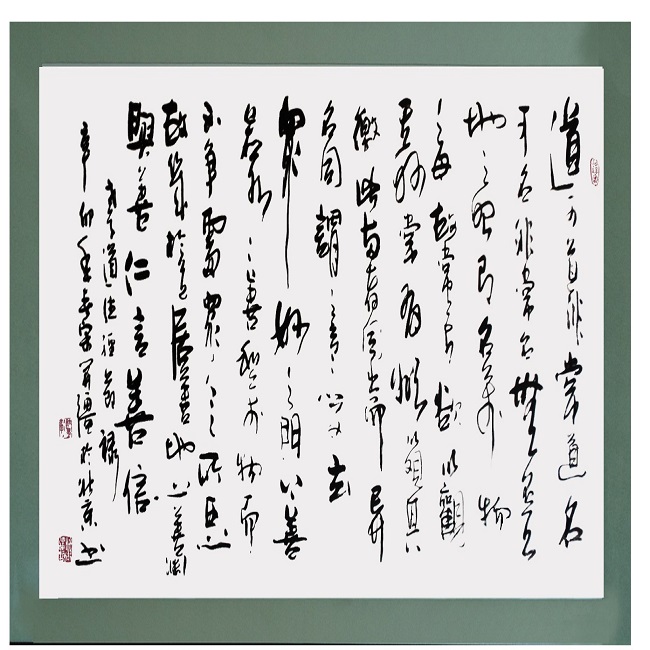 道可道非常道名
可名非常名無名天
地之始有名萬物
之母故常無欲以觀
其妙常有欲以觀其
徼此兩者同出而異
名同謂之玄玄之又玄
眾妙之門上善
若水水善利萬物而
不爭處眾人之所惡
故幾於道居善地心善淵
與善仁言善信
老子道德經節錄
辛卯年 於北京書